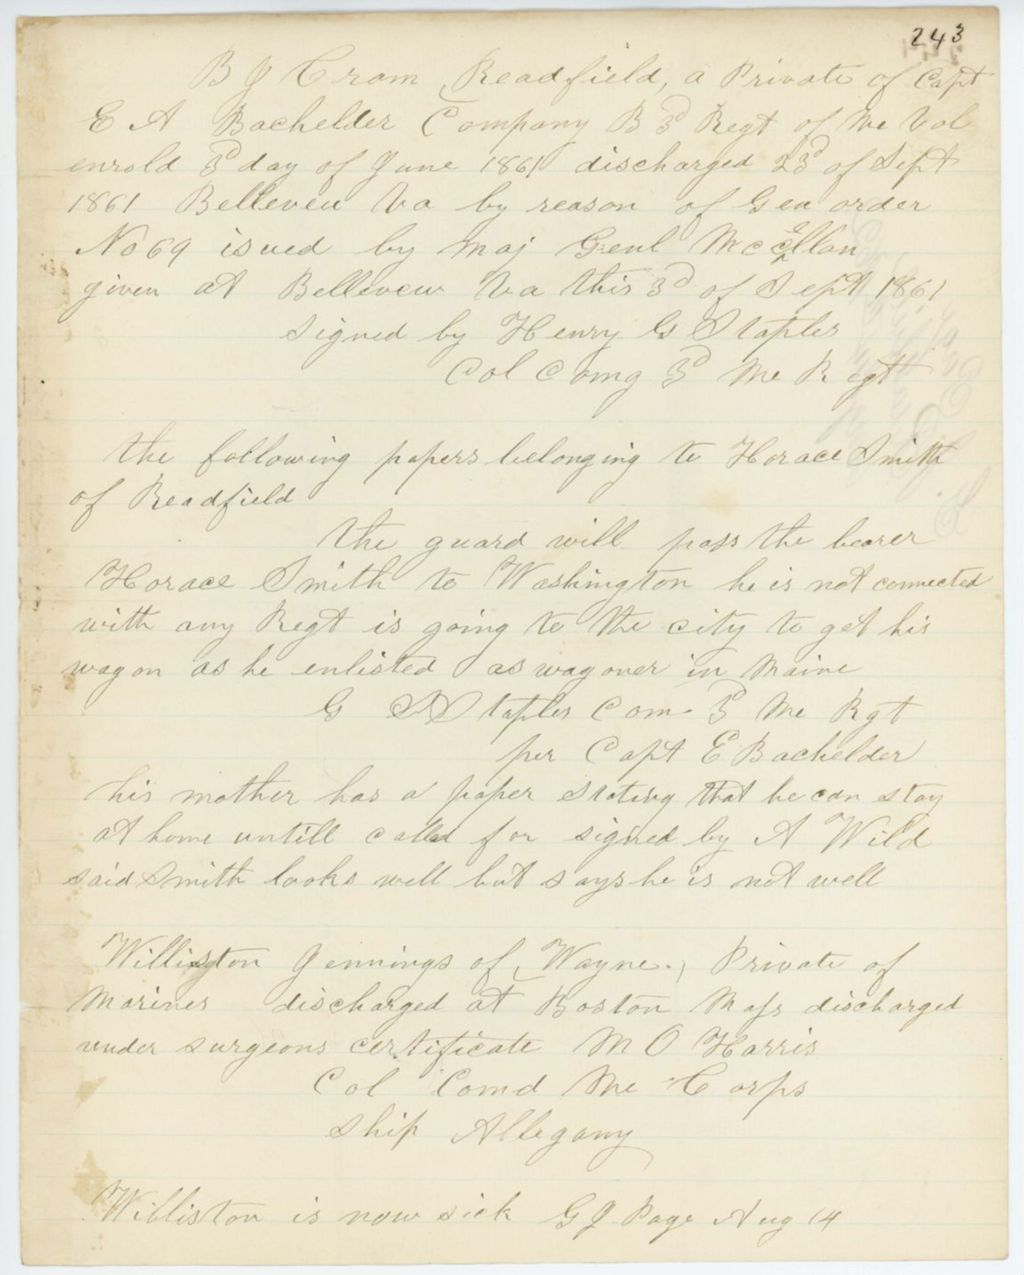 243
B J Cram, Readfield, a Private of Capt
E A Bachelder Company B 3d Regt of Me Vol
enrold 3d day of June 1861 discharged 23d of Sept
1861 Belleveu Va by reason of Gen order
No 69 issued by Maj Genl McCellan
given at Bellevew Va this 3d of Sept 1861
signed by Henry G Staples
Col Comg 3d Me Regt
the following papers belonging to Horace Smith
of Readfield
the guard will pass the bearer
Horace Smith to Washington he is not connected
with any Regt is going to the city to get his
wagon as he enlisted as wagoner in Maine
G Staples Com 3d Me Rgt
per Capt E Bachelder
his mother has a paper stating that he can stay
at home untill called for signed by A Wild
said Smith looks well but says he is not well
Williston Jennings of Wayne, Private of
Marines discharged at Boston Mass discharged
under surgeons certificate M O Harris
Col Comd Me Corps
Ship Allegany
Williston is now sick G J Page Aug 14